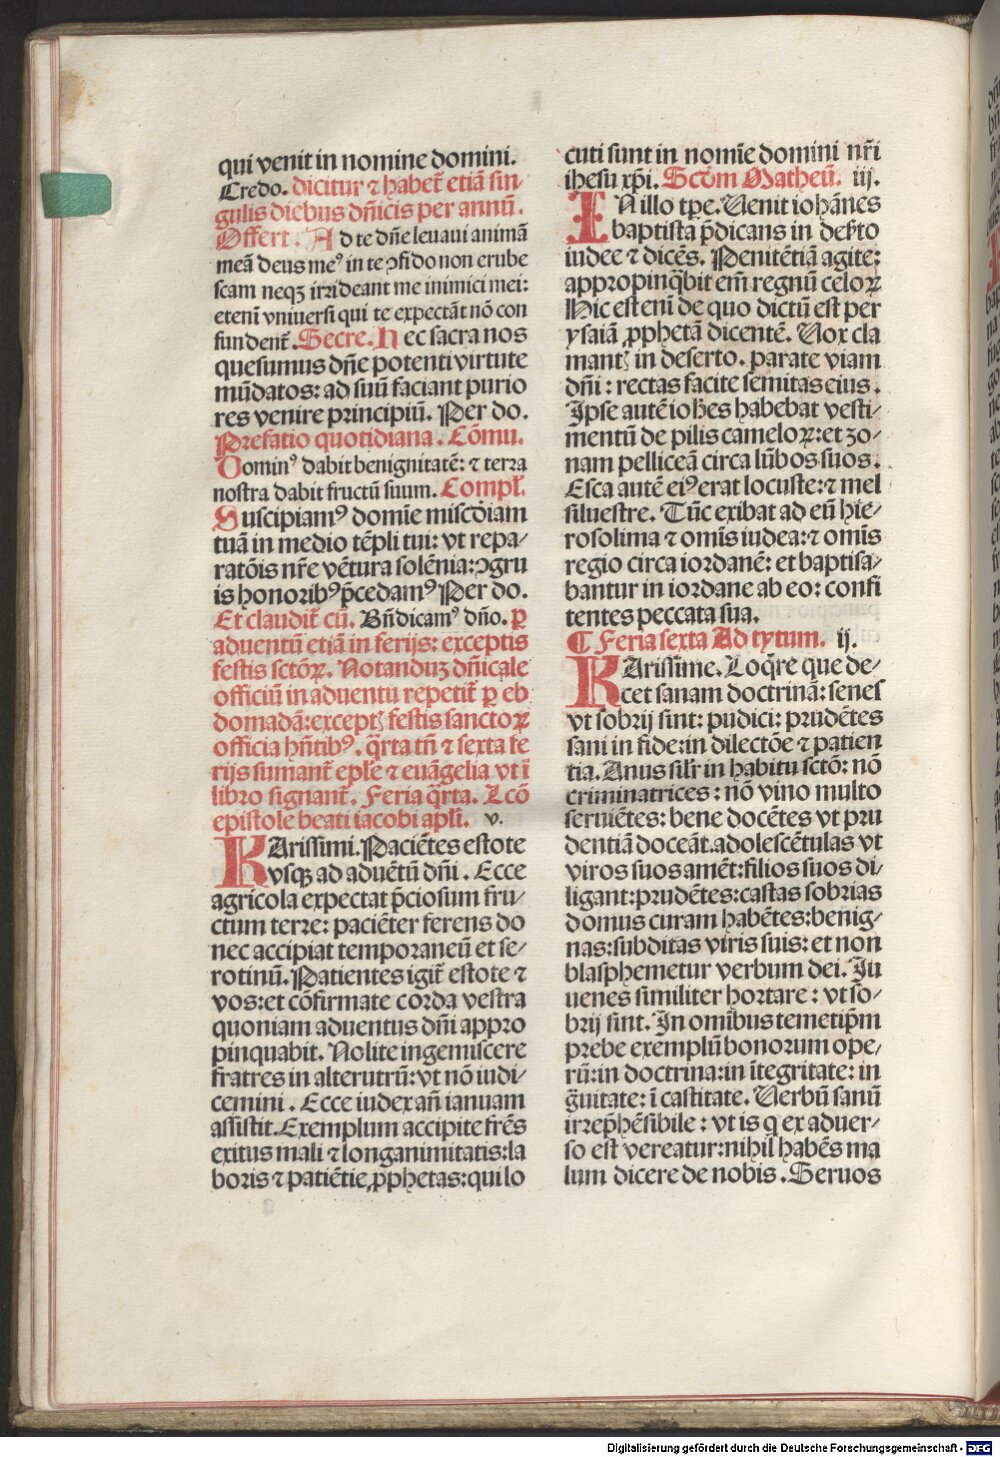 qui venit in nomine domini.
Credo. dicitur ⁊ habet̃ etiā sin-
gulis diebus dñicis per annũ.
Offert. Ad te dñe leuaui animã
meã deus meꝰ in te ↄfido non erube
scam neqꝫ irrideant me inimici mei:
etenĩ vniuersi qui te expectãt nõ con
fundent̃. Secre. Nec sacra nos
quesumus dñe potenti virtute
mũdatos: ad suũ faciant purio
res venire principiũ. Per do.
Prefatio quotidiana. Cõmu.
Dominꝰ dabit benignitatẽ: ⁊ terra
nostra dabit fructũ suum. Compl̃.
Suscipiamꝰ domĩe miscd̃iam
tuã in medio tẽpli tui: vt repa-
ratõis nr̃e vẽtura solẽnia: ↄgru
is honoribꝰ p̃cedamꝰ Per do.
Et claudit̃ cũ. Bñdicamꝰ dño. ꝑ
aduentũ etiã in ferijs: exceptis
festis sctõꝝ. Notanduꝫ dñicale
officiũ in aduentu repetit̃ ꝑ eb
domadã: exceptꝭ festis sanctoꝝ
officia hñtibꝰ. q̃rta tñ ⁊ sexta fe
rijs sumant̃ epl̃e ⁊ euãgelia vt ĩ
libro signant̃. Feria q̃rta. Lcõ
epistole beati iacobi apl̃i. v.
KArissimi. Paciẽtes estote
vsqꝫ ad aduẽtũ dñi. Ecce
agricola expectat p̃ciosum fru-
ctum terre: paciẽter ferens do
nec accipiat temporaneũ et se-
rotinũ. Patientes igit̃ estote ⁊
vos: et cõfirmate corda vestra
quoniam aduentus dñi appro
pinquabit. Nolite ingemiscere
fratres in alterutrũ: vt nõ iudi-
cemini. Ecce iudex añ ianuam
assistit. Exemplum accipite frẽs
exitus mali ⁊ longanimitatis: la
boris ⁊ patiẽtie ꝓphetas: qui lo
cuti sunt in nomĩe domini nr̃i
ihesu xp̃i. Scd̃m Matheũ. iij.
IN illo tꝑe. Uenit iohãnes
baptista p̃dicans in deẜto
iudee ⁊ dicẽs. Penitẽtiã agite:
appropinq̃bit em̃ regnũ celoꝝ
Hic est enĩ de quo dictũ est per
ysaiã ꝓphetã dicentẽ. Uox cla
mantꝭ in deserto. parate viam
dñi: rectas facite semitas eius.
Ipse autẽ ioh̃es habebat vesti-
mentũ de pilis cameloꝝ: et zo-
nam pelliceã circa lũbos suos.
Esca autẽ eiꝰ erat locuste: ⁊ mel
siluestre. Tũc exibat ad eũ hie-
rosolima ⁊ omĩs iudea: ⁊ omĩs
regio circa iordanẽ: et baptisa-
bantur in iordane ab eo: confi
tentes peccata sua.
¶ Feria sexta Ad tytum. ij.
KArissime. Loq̃re que de-
cet sanam doctrinã: senes
vt sobrij sint: pudici: prudẽtes
sani in fide: in dilectõe ⁊ patien
tia. Anus silr̃ in habitu sctõ: nõ
criminatrices: nõ vino multo
seruiẽtes: bene docẽtes vt pru
dentiã doceãt. adolescẽtulas vt
viros suos amẽt: filios suos di-
ligant: prudẽtes: castas sobrias
domus curam habẽtes: benig-
nas: subditas viris suis: et non
blasphemetur verbum dei. Iu
uenes similiter hortare: vt so-
brij sint. In omĩbus temetip̃m
prebe exemplũ bonorum ope-
rũ: in doctrina: in ĩtegritate: in
g̃uitate: ĩ castitate. Uerbũ sanũ
irrep̃hẽsibile: vt is q ex aduer-
so est vereatur: nihil habẽs ma
lum dicere de nobis. Seruos
Digitalisierung gefördert durch die Deutsche Forschungsgemeinschaft - DFG